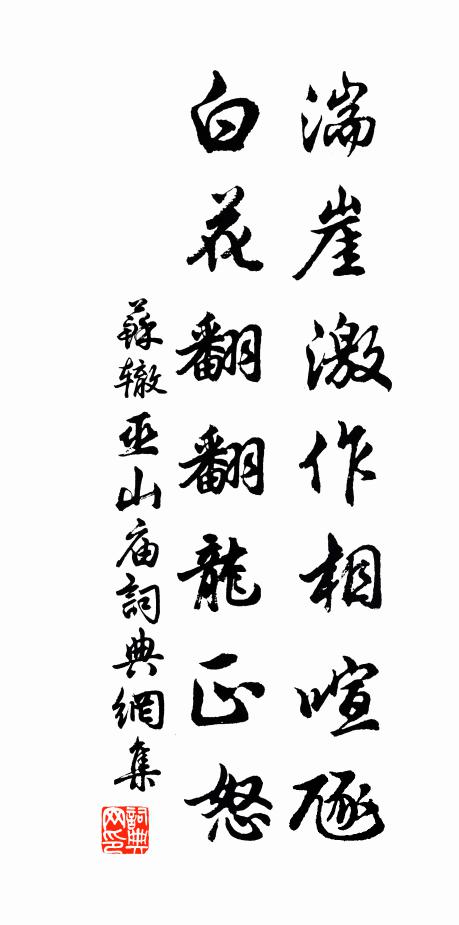 湍崖激作相喧豗
白花翻翻龍正怒
蘇辙巫山庙詞典網集
詞典网印